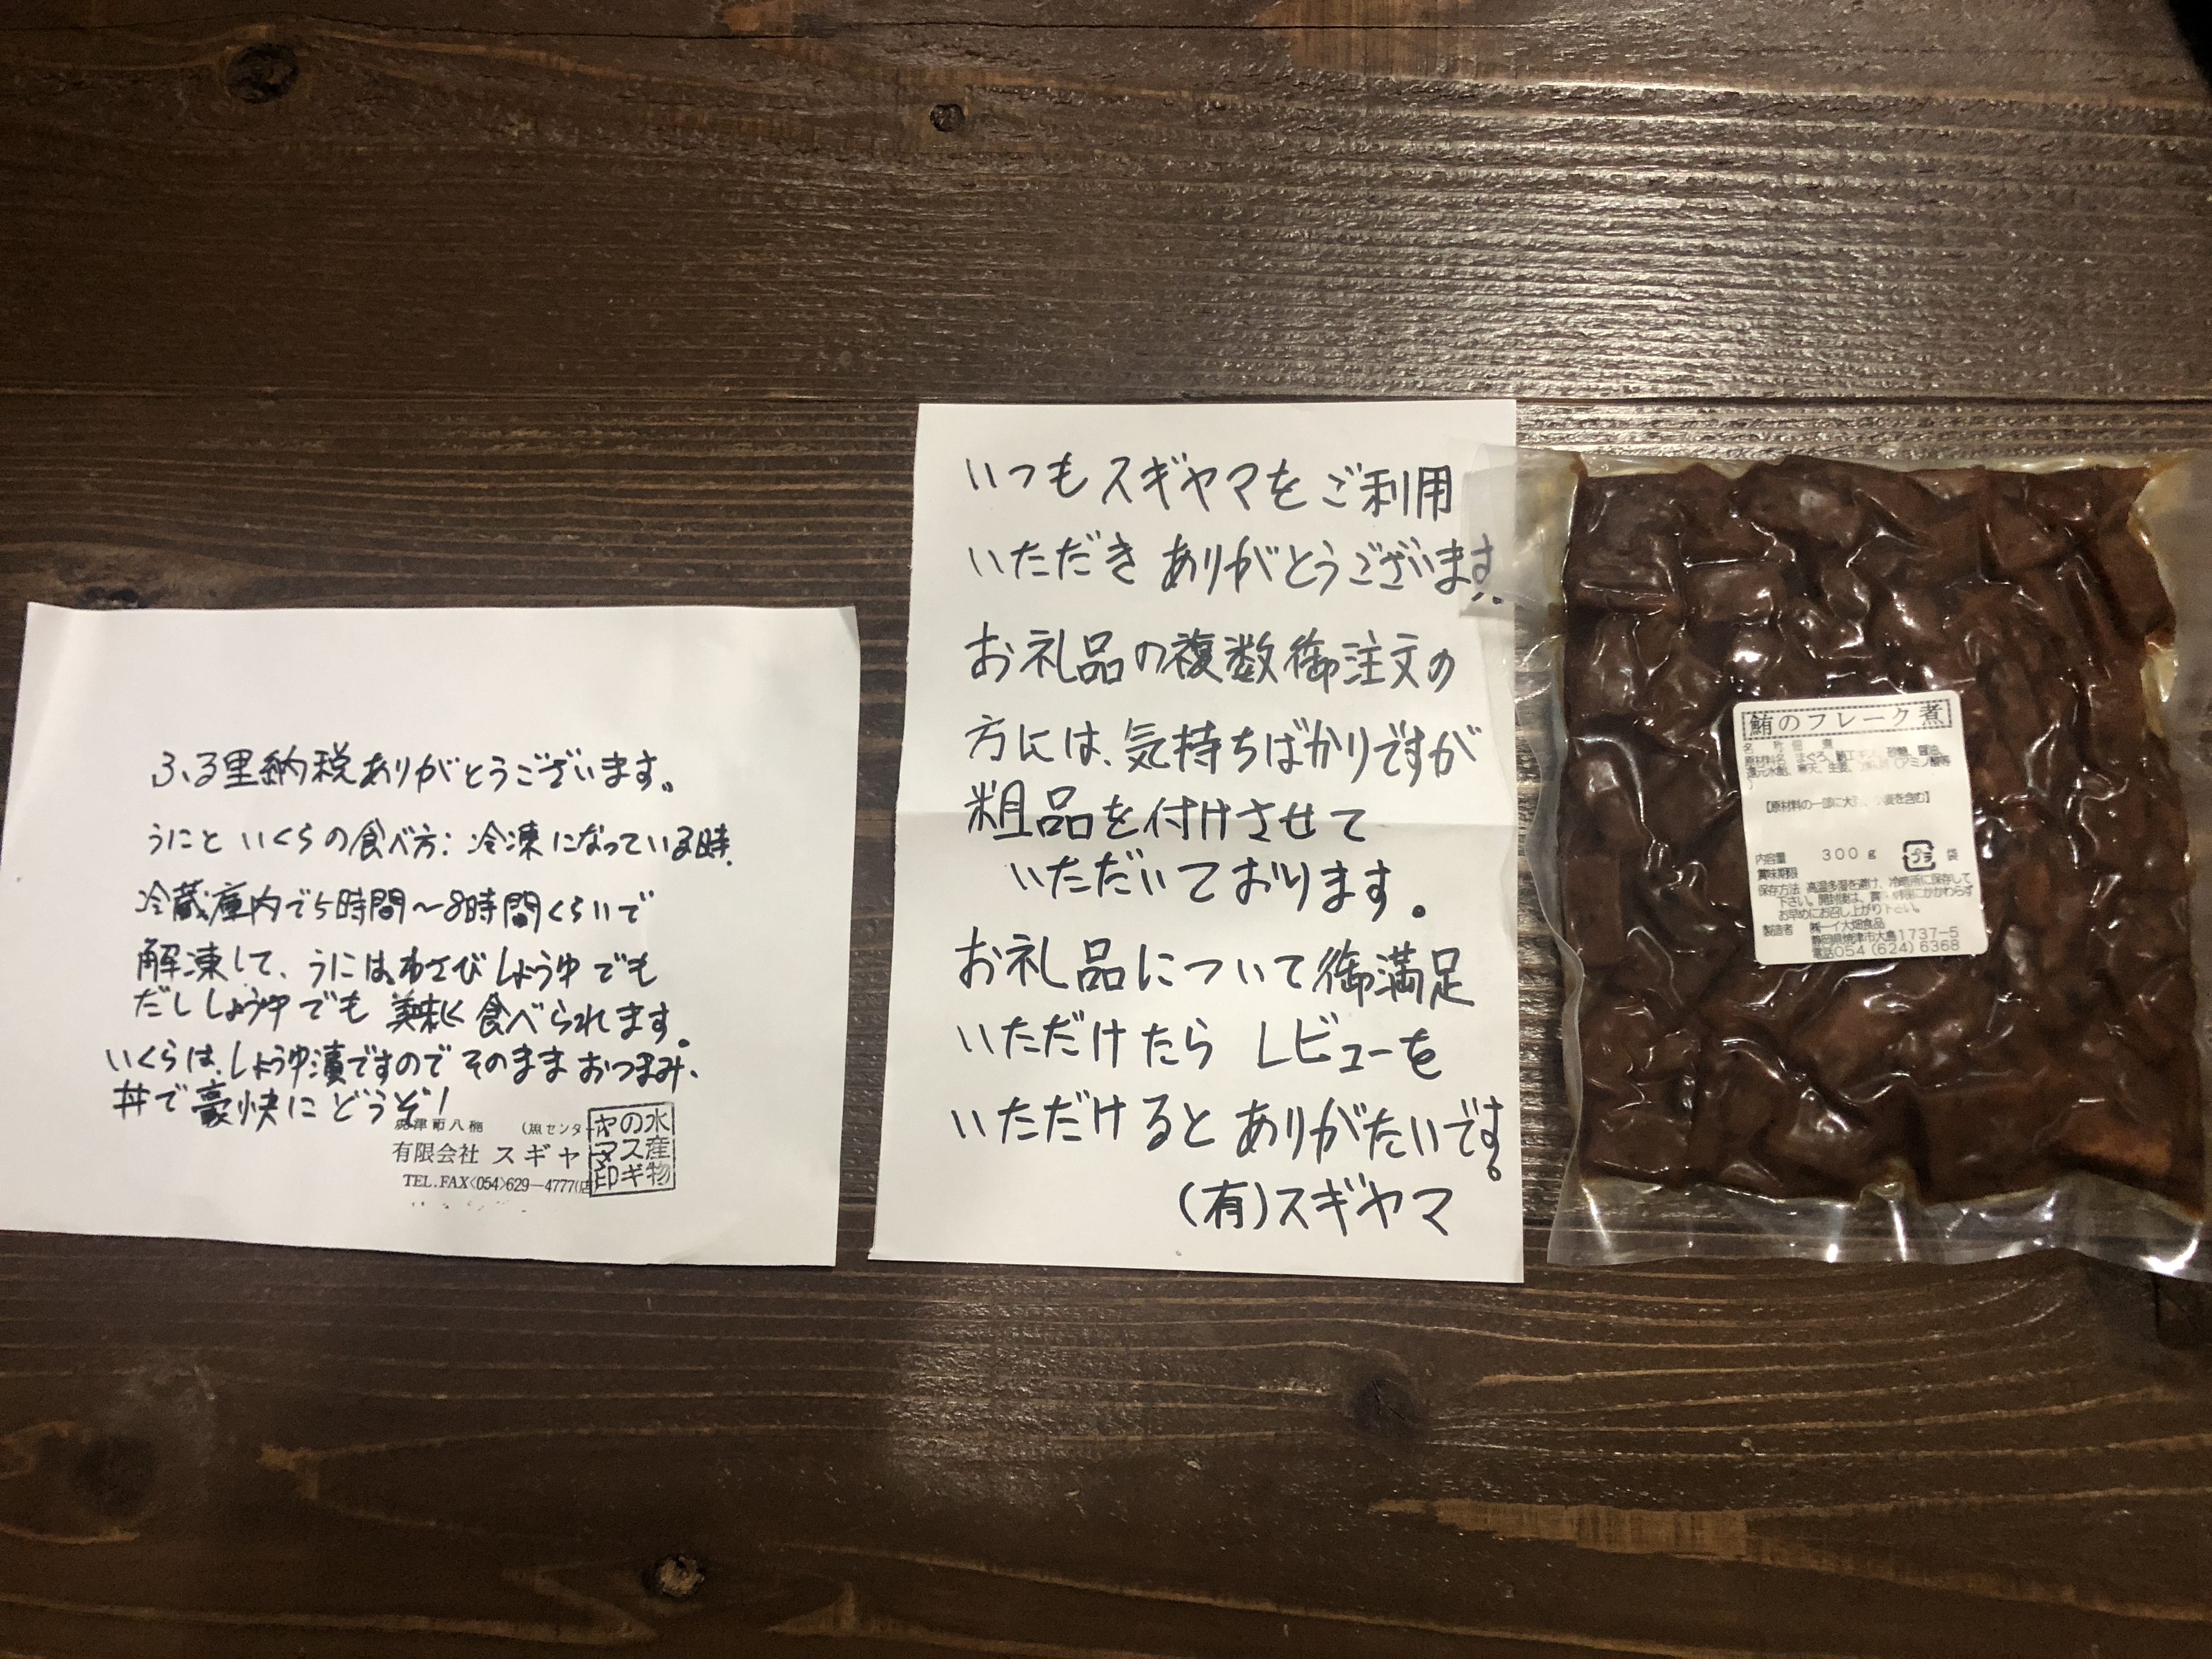 ふる里納税ありがとうございます。
うにと いくらの食べ方: 冷凍になっている時、
冷蔵庫内で5時間〜8時間くらいで
解凍して、うには、わさびしょうゆでも
だししょうゆでも 美味く食べられます。
いくらは、しょうゆ漬ですので そのまま おつまみ、
丼で豪快に どうぞ!
津市八楠 (魚センター
有限会社 スギヤマ
TEL.FAX〈054〉629―4777(店
水産物
のスギ
ヤマ印
いつもスギヤマをご利用
いただき ありがとうございます。
お礼品の複数御注文の
方には、気持ちばかりですが
粗品を付けさせて
いただいております。
お礼品について御満足
いただけたら レビューを
いただけると ありがたいです。
(有)スギヤマ
鮪のフレーク煮
名 称 佃 煮
原材料名 まぐろ、 砂糖、醤油、
還元水飴、寒天、生姜、 (アミノ酸等
)
【原材料の一部に大豆、小麦を含む】
内容量 300g プラ 袋
賞味期限
保存方法 高温多湿を避け、冷暗所に保存して
下さい。開封後は、賞味期限にかかわらず
お早めにお召し上がり下さい。
製造者 ㈱一イ大畑食品
静岡県焼津市大島1737-5
電話054(624)6368